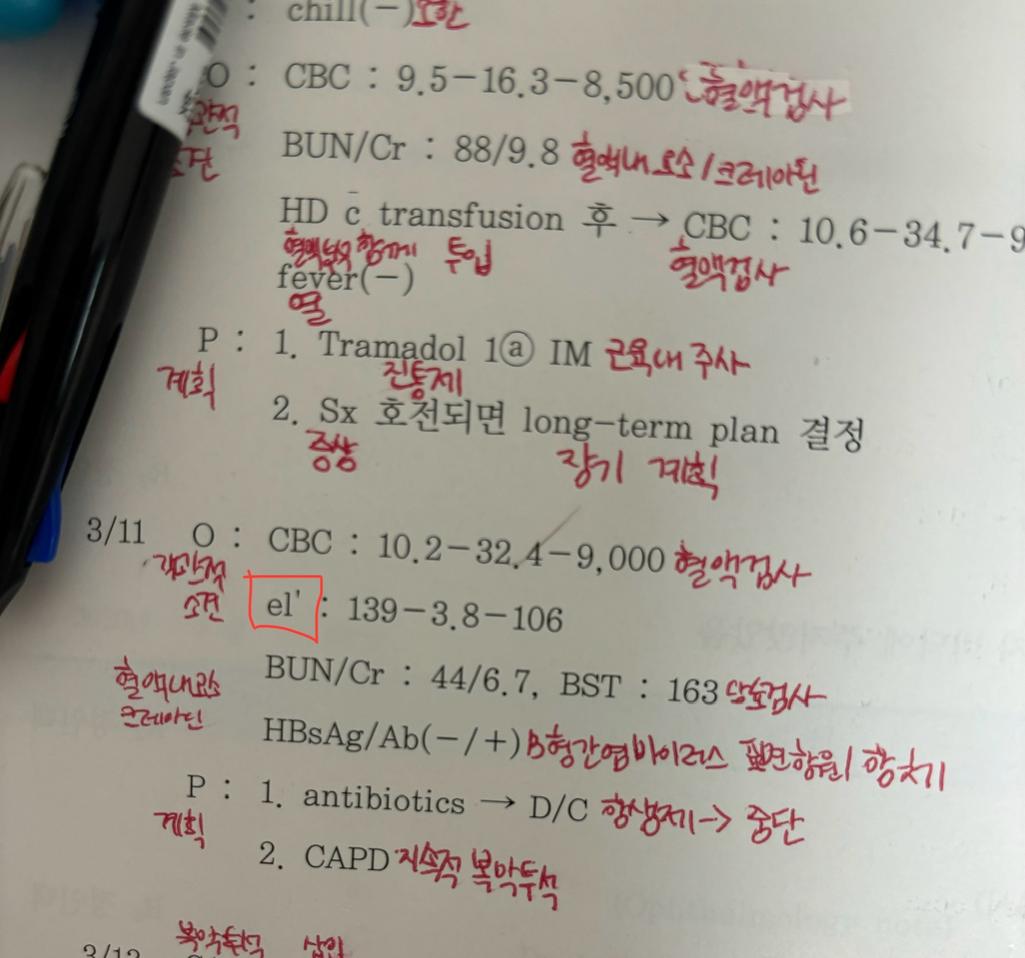 : chill(-)오한
O : CBC : 9.5-16.3-8,500 혈액검사
관적
소견
BUN/Cr : 88/9.8 혈액내요소/크레아틴
HD c̄ transfusion 후 → CBC : 10.6-34.7-9
함께 투입 혈액검사
fever(-)
열
P : 1. Tramadol 1ⓐ IM 근육내 주사
계획 진통제
2. Sx 호전되면 long-term plan 결정
증상 장기 계획
3/11 O : CBC : 10.2-32.4-9,000 혈액검사
객관적
소견 el' : 139-3.8-106
혈액내요소 BUN/Cr : 44/6.7, BST : 163 당뇨검사
크레아틴
HBsAg/Ab(-/+) B형간염바이러스 표면항원/항체
P : 1. antibiotics → D/C 항생제-> 중단
계획
2. CAPD 지속적 복막투석
복막투석 삽입
3/12